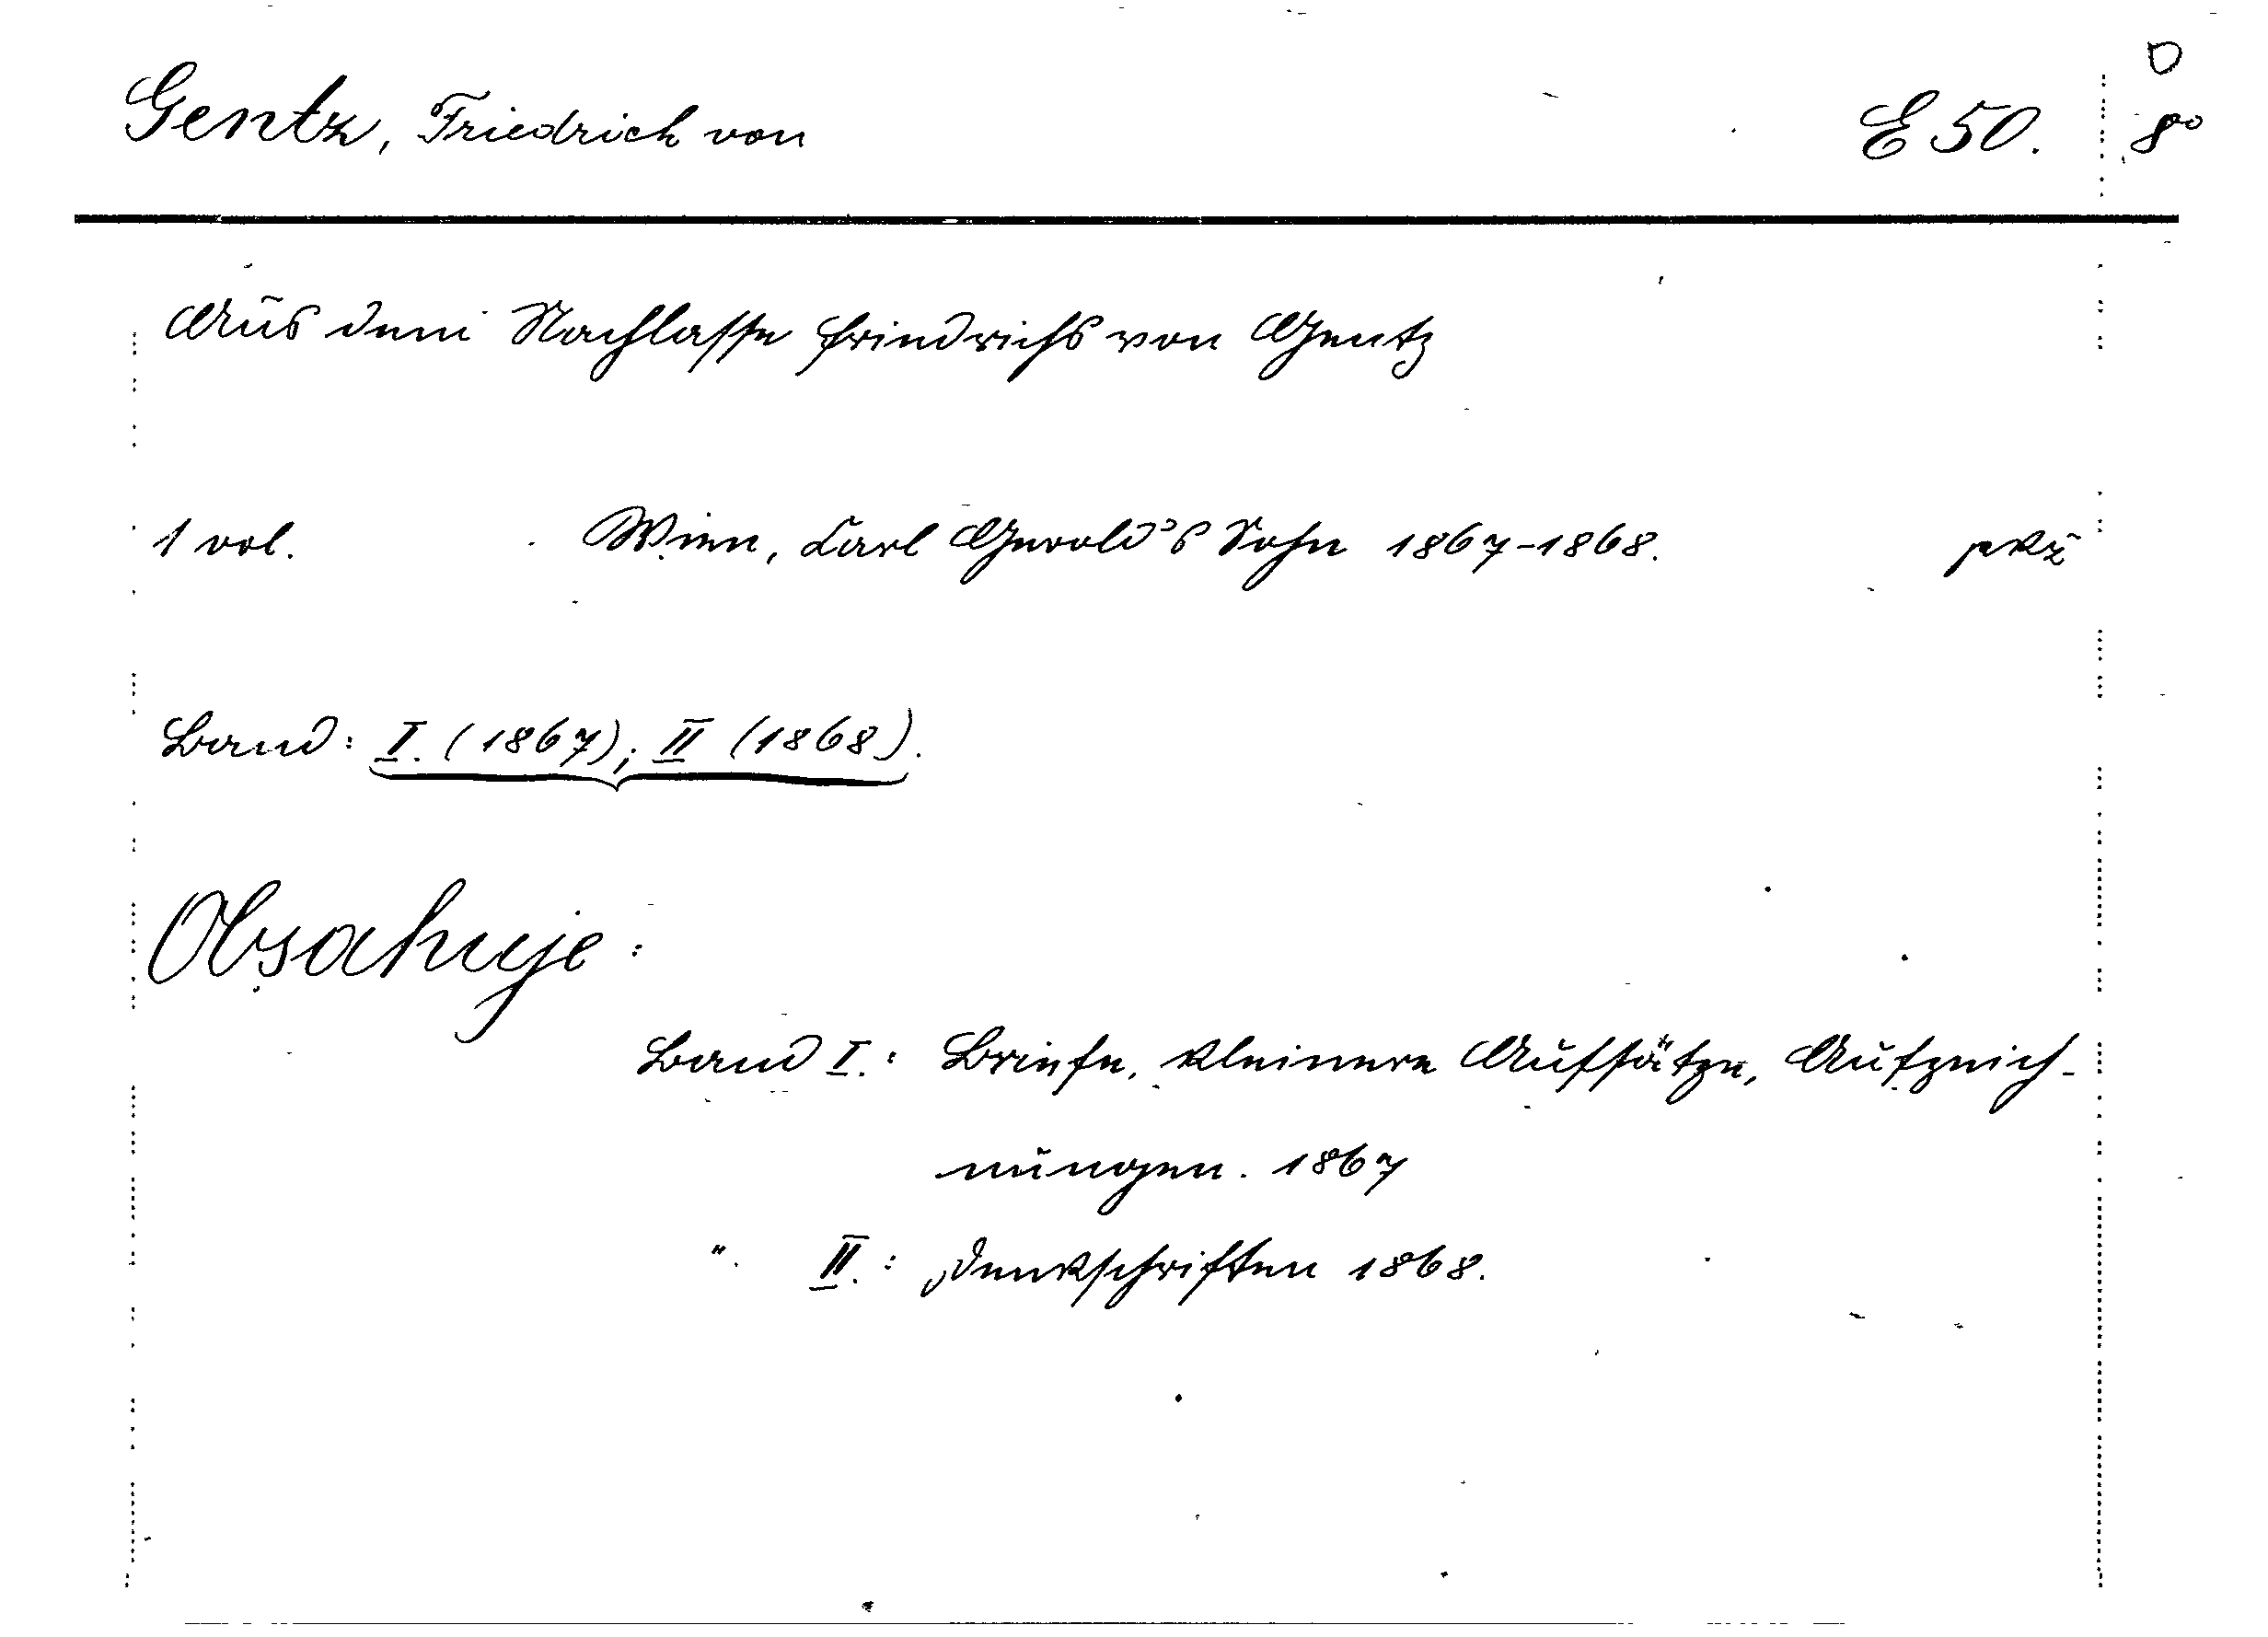 Gentz, Friedrich von E 50. 8°
D
Aus dem Nachlasse Friedrichs von Gentz
1 vol. Wien, Carl Gerold's Sohn 1867-1868. pkž
Band: I. (1867); II (1868).
Obsahuje:
Band I.: Briefe, kleinere Aufsätze, Aufzeich-
nungen. 1867
". II.: Denkschriften 1868.